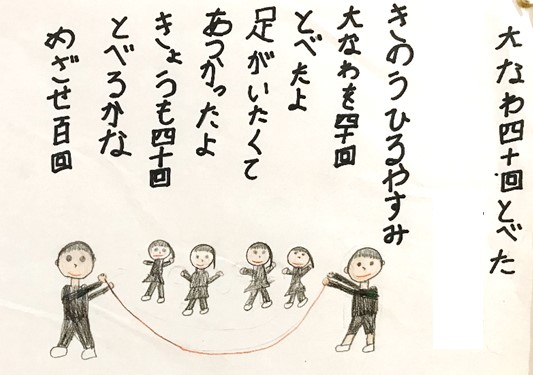 大なわ四十回とべた
きのうひるやすみ
大なわを四十回
とべたよ
足がいたくて
あつかったよ
きょうも四十回
とべるかな
めざせ百回